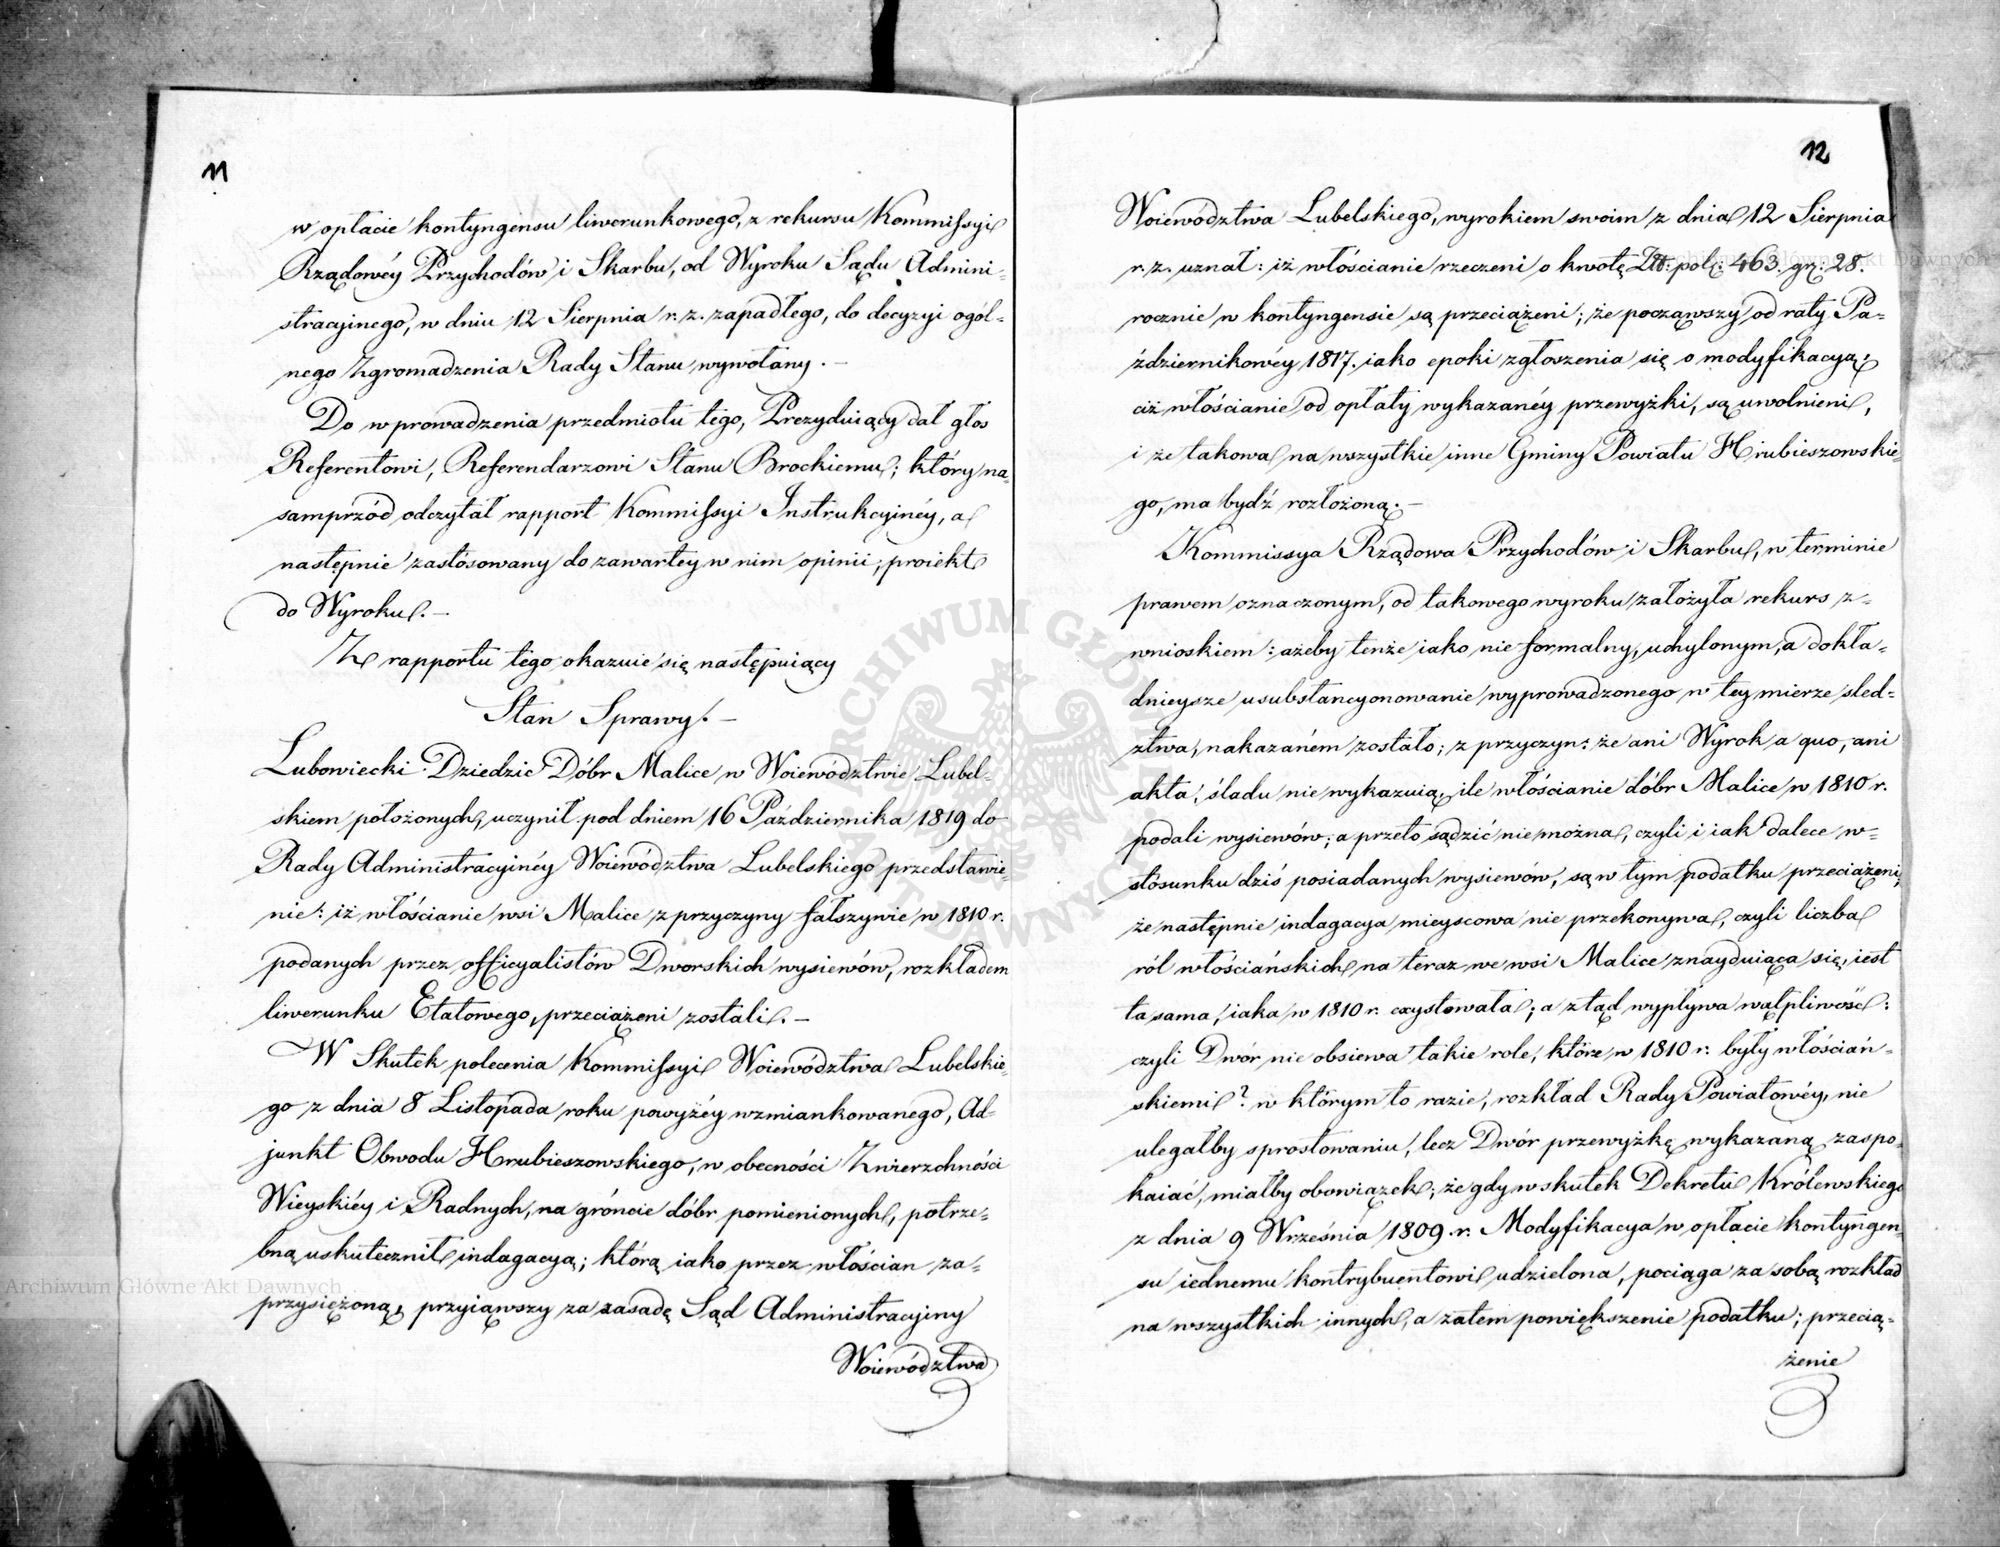 11
w opłacie kontyngensu liwerunkowego, z rekursu Kommissyi
Rządowéy Przychodów i Skarbu, od Wyroku Sądu Admini-
stracyjnego, w dniu 12 Sierpnia r. z. zapadłego, do decyzyi ogól-
nego Zgromadzenia Rady Stanu wywołany. –
Do wprowadzenia przedmiotu tego, Prezyduiący dał głos
Referentowi, Referendarzowi Stanu Brockiemu; który na-
samprzód odczytał rapport Kommissyi Instrukcyinéy, a
następnie zastósowany do zawartey w nim opinii, proiekt
do Wyroku. –
Z rapportu tego okazuie się następuiący
Stan Sprawy. –
Lubowiecki Dziedzic Dóbr Malice w Woiewództwie Lubel-
skiem położonych, uczynił pod dniem 16 Października 1819 do
Rady Administracyinéy Woiewództwa Lubelskiego przedstawie-
nie: iż włościanie wsi Malice z przyczyny fałszywie w 1810 r.
podanych przez officyalistów Dworskich wysiewów, rozkładem
liwerunku Etatowego, przeciążeni zostali. –
W Skutek polecenia Kommissyi Woiewództwa Lubelskie-
go z dnia 8 Listopada roku powyżéy wzmiankowanego, Ad-
junkt Obwodu Hrubieszowskiego, w obecności Zwierzchności
Wieyskiéy i Radnych, na gróncie dóbr pomienionych, potrze-
bną uskutecznił indagacyą; którą iako przez włościan za-
przysiężoną, przyiąwszy za zasadę Sąd Administracyjny
Woiewództwa
12
Woiewództwa Lubelskiego, wyrokiem swoim z dnia 12 Sierpnia
r. z. uznał: iż włościanie rzeczeni o kwotę Złł: pol: 463. gr: 28.
rocznie w kontyngensie są przeciążeni; że począwszy od raty Pa-
ździernikowéy 1817. iako epoki zgłoszenia się o modyfikacyą;
ciż włościanie od opłaty wykazanéy przewyżki, są uwolnieni,
i że takowa na wszystkie inne Gminy Powiatu Hrubieszowskie-
go, ma bydź rozłożoną. –
Kommissya Rządowa Przychodów i Skarbu, w terminie
prawem oznaczonym, od takowego wyroku założyła rekurs z-
wnioskiem: ażeby tenże iako nie formalny, uchylonym, a dokła-
dnieysze usubstancyonowanie wyprowadzonego w tey mierze sled-
ztwa, nakazaném zostało; z przyczyn: że ani Wyrok a quo, ani
akta, śladu nie wykazuią, ile włościanie dóbr Malice w 1810 r.
podali wysiewów; a przeto sądzić nie można, czyli i iak dalece w-
stósunku dziś posiadanych wysiewów, są w tym podatku przeciążeni;
że następnie indagacya mieyscowa nie przekonywa, czyli liczba
ról włościańskich na teraz we wsi Malice znayduiąca się, iest
ta sama, iaka w 1810 r. exystowała; a ztąd wypływa wątpliwość:
czyli Dwór nie obsiewa takie role, które w 1810 r. były włościań-
skiemi? w którym to razie, rozkład Rady Powiatowéy, nie
ulegałby sprostowaniu, lecz Dwór przewyżkę wykazaną zaspo-
kaiać, miałby obowiązek; że gdy w skutek Dekretu Królewskiego
z dnia 9 Września 1809. r. Modyfikacya w opłacie kontyngen-
su iednemu kontrybuentowi udzielona, pociąga za sobą rozkład
na wszystkich innych, a zatem powiększenie podatku; przecią-
żenie
Archiwum Główne Akt Dawnych
Archiwum Główne Akt Dawnych
ARCHIWUM GŁÓWNE AKT DAWNYCH